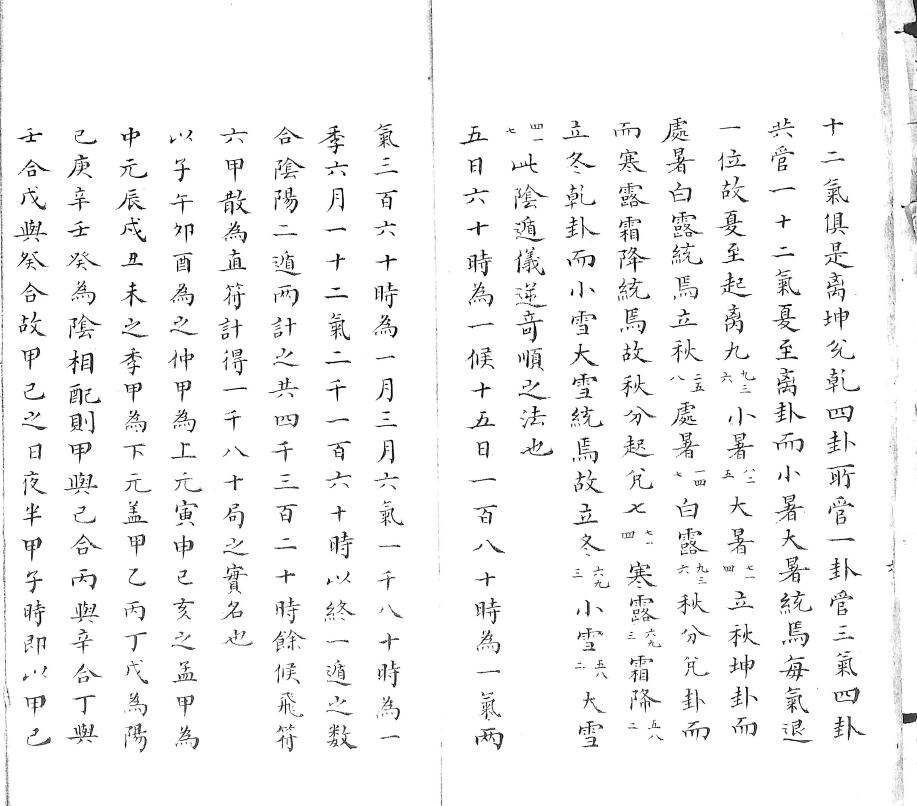 十二氣俱是离坤兊乾四卦所管一卦管三氣四卦
共管一十二氣夏至离卦而小暑大暑統焉每氣退
一位故夏至起离九九三六小暑八二五大暑七一四立秋坤卦而
處暑白露統焉立秋二五八處暑一四七白露九三六秋分兊卦而
而寒露霜降統焉故秋分起兊七七一四寒露六九三霜降五八二
立冬乾卦而小雪大雪統焉故立冬六九三小雪五八二大雪
四一七此陰遁儀逆竒順之法也
五日六十時為一候十五日一百八十時為一氣两
氣三百六十時為一月三月六氣一千八十時為一
季六月一十二氣二千一百六十時以終一遁之数
合陰陽二遁两計之共四千三百二十時餘候飛符
六甲散為直符計得一千八十局之實名也
以子午卯酉為之仲甲為上元寅申已亥之孟甲為
中元辰戍丑未之季甲為下元盖甲乙丙丁戊為陽
己庚辛壬癸為陰相配則甲與己合丙與辛合丁與
壬合戊與癸合故甲己之日夜半甲子時即以甲己